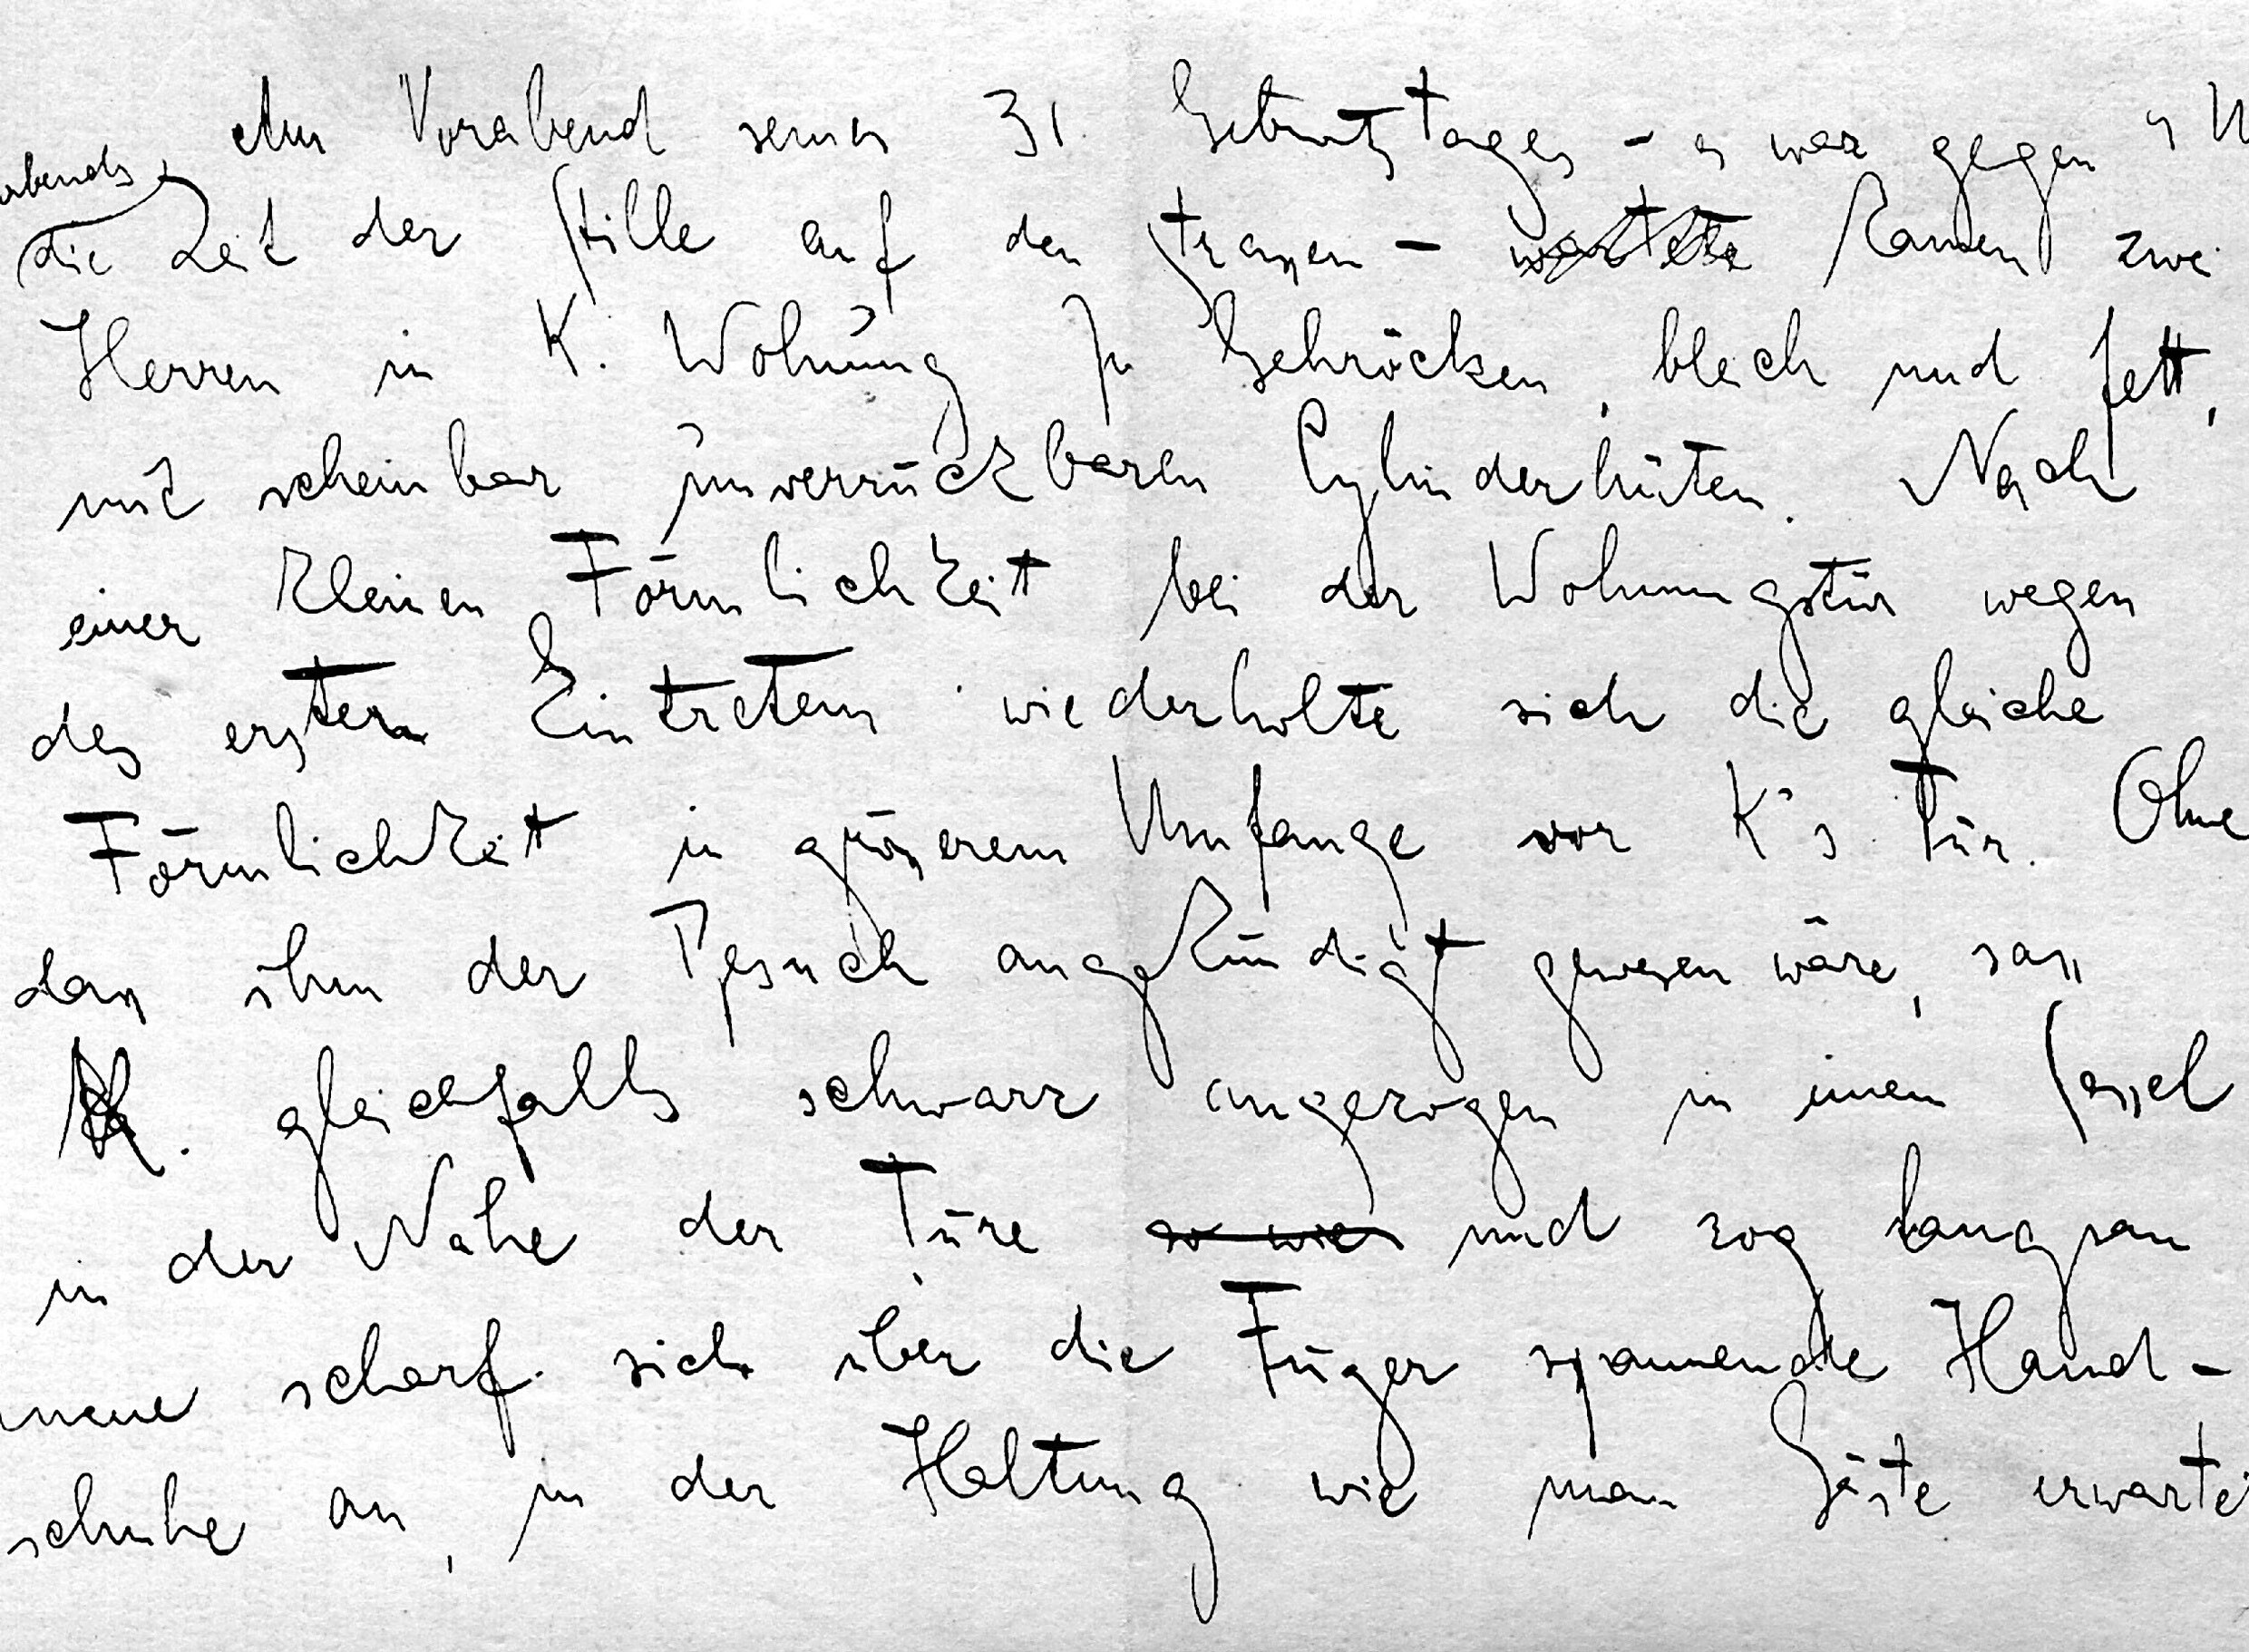 Am Vorabend seines 31. Geburtstages – es war gegen 9 U
abends
die Zeit der Stille auf den Strassen – wartete kamen zwei
Herren in K. Wohnung In Gehröcken, bleich und fett,
mit scheinbar unverrückbaren Cylinderhüten. Nach
einer kleinen Förmlichkeit bei der Wohnungstür wegen
des ersten Eintretens wiederholte sich die gleiche
Förmlichkeit in grösserem Umfange vor K's Tür. Ohne
dass ihm der Besuch angekündigt gewesen wäre, sass
K. gleichfalls schwarz angezogen in einem Sessel
in der Nähe der Türe so wie und zog langsam
neue scharf sich über die Finger spannende Hand-
schuhe an, in der Haltung wie man Gäste erwartet